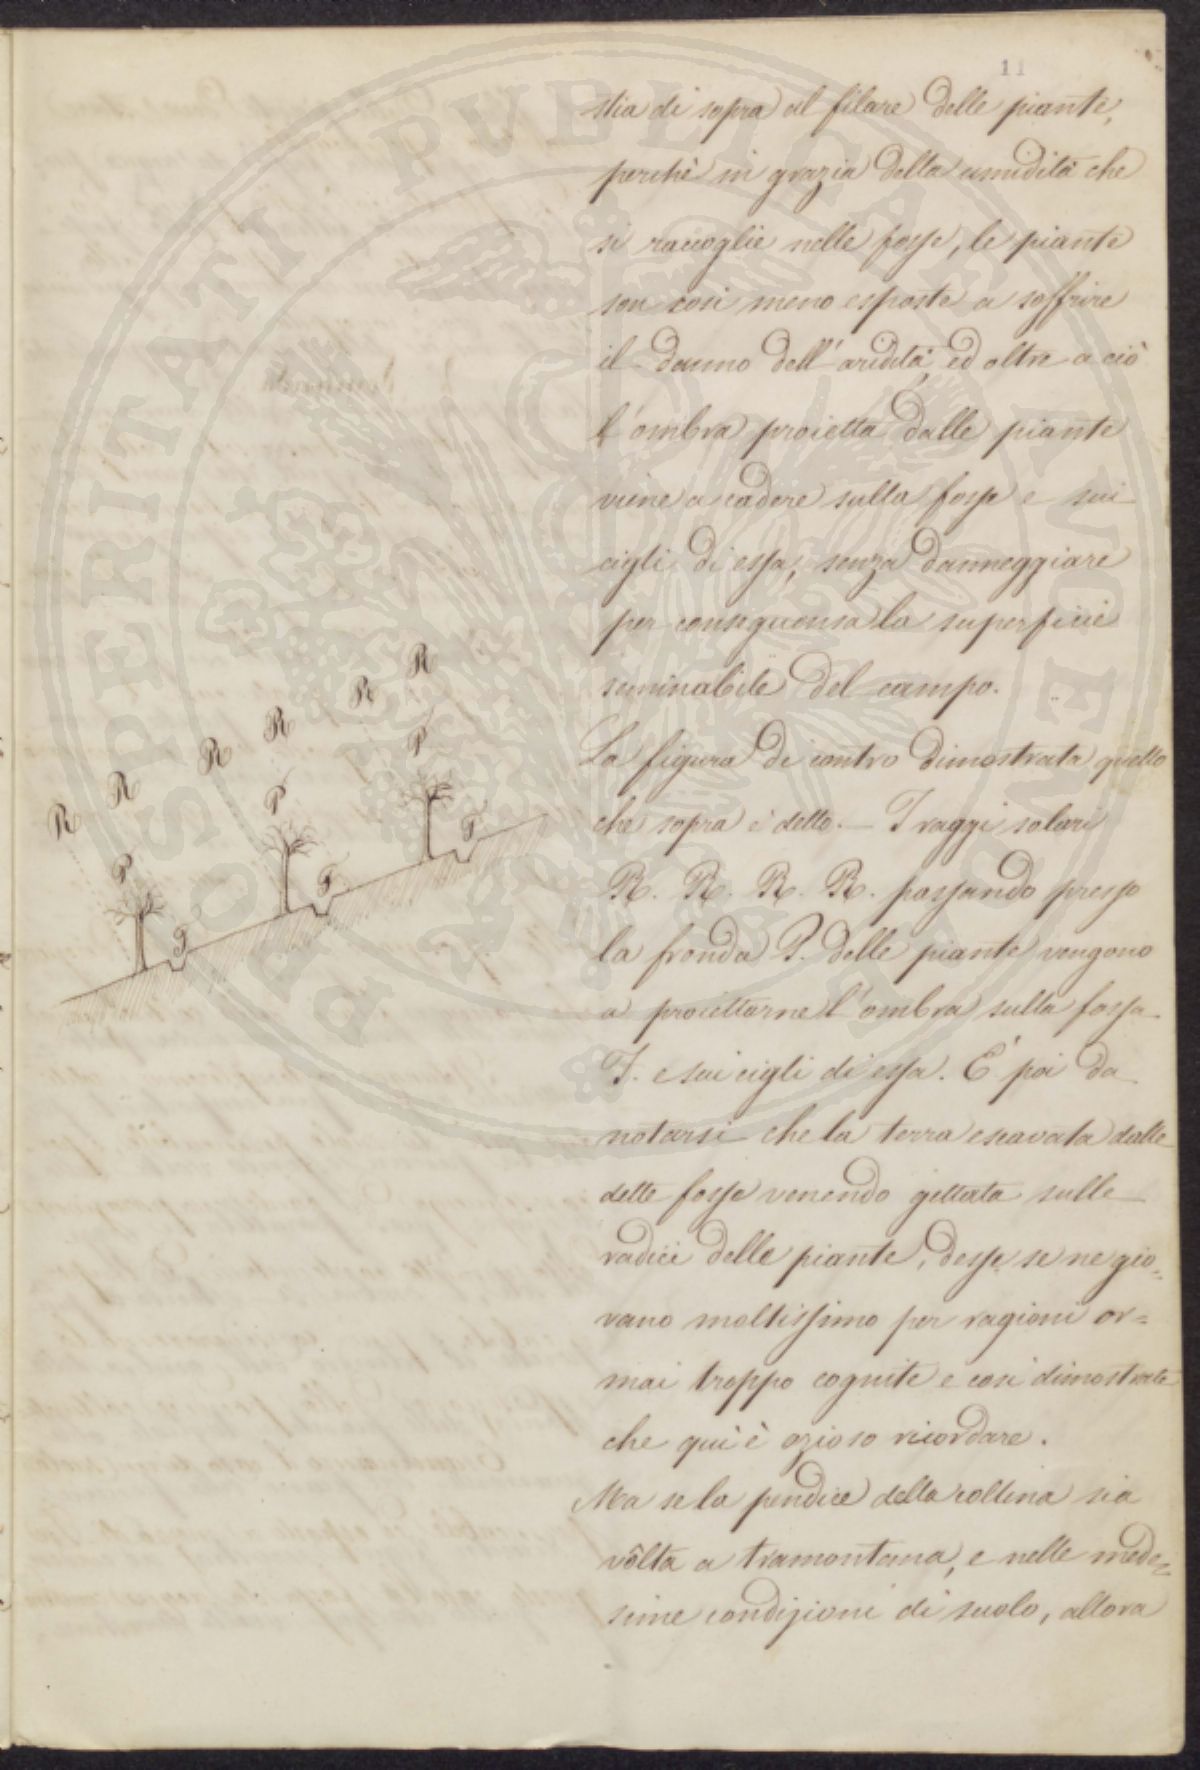 11
stia di sopra al filare delle piante,
perchè in grazia della umidità che
si raccoglie nelle fosse, le piante
son così meno esposte a soffrire
il danno dell'aridità, ed oltre a ciò
l'ombra proietta dalle piante
viene a cadere sulla fossa e sui
cigli di essa, senza danneggiare
per conseguensa la superficie
seminabile del campo.
La figura di contro dimostrata quello
che sopra è detto. — I raggi solari
R. R. R. R. passando presso
la fronda P. delle piante vengono
a proiettarne l'ombra sulla fossa
F. e sui cigli di essa. È poi da
notarsi che la terra escavata dalle
dette fosse venendo gettata sulle
radici delle piante, desse se ne gio=
vano moltissimo per ragioni or=
mai troppo cognite e così dimostrate
che qui è ozioso ricordare.
Ma se la pendice della collina sia
vôlta a tramontana, e nelle mede=
sime condizioni di suolo, allora
R R R R R R
P P P
F F F
PROSPERITATI PUBLICAE AUGENDAE